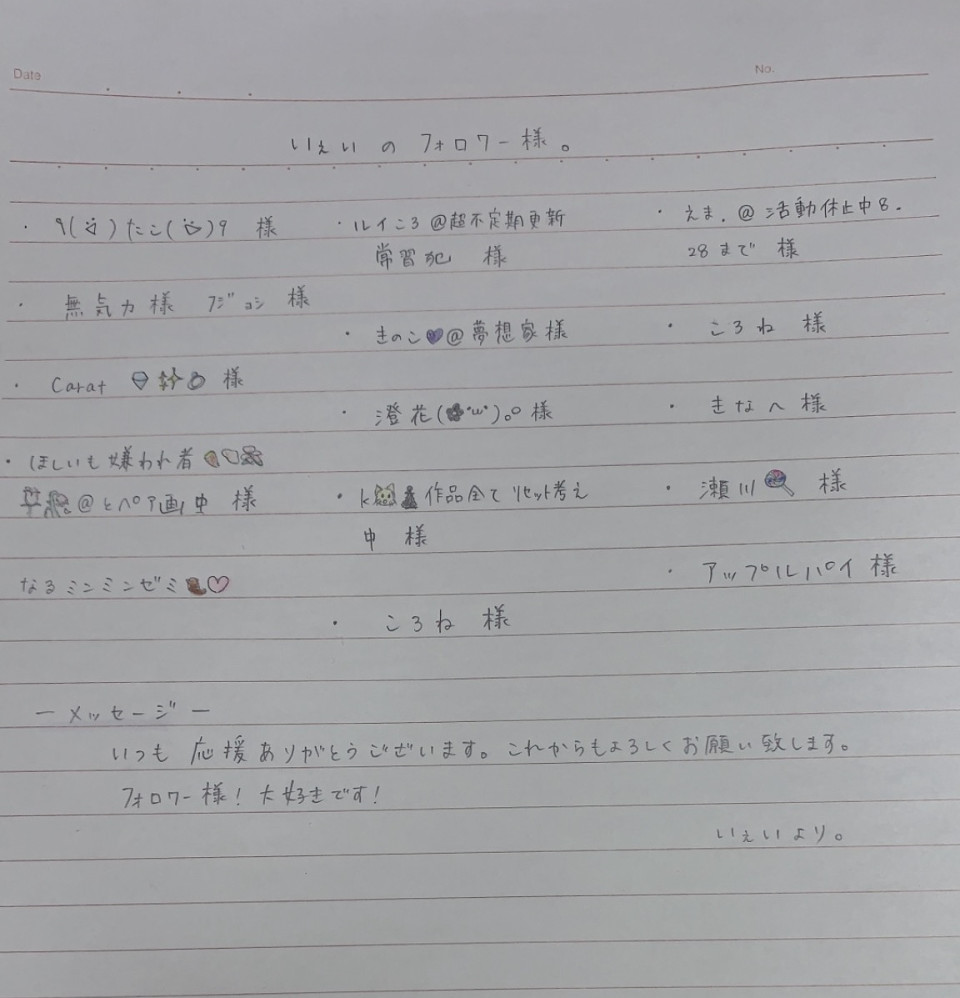 Date
No.
いぇいの フォロワー様。
・ 9(ӱ)たこ(ӱ)9 様
・ 無気力様 フジョシ 様
・ Carat 💎✨💍 様
・ ほしいも嫌われ者
@とペア画中 様
なるミンミンゼミ ♡
・ ルイころ@超不定期更新
常習犯 様
・ きのこ💜@夢想家様
・ 澄花( ・ω・)。o 様
・ k🐱 作品全てリセット考え
中 様
・ ころね 様
・ えま.@活動休止中8.
28まで 様
・ ころね 様
・ きなへ 様
・ 瀬川🍭 様
・ アップルパイ 様
ー メッセージ ー
いつも 応援ありがとうございます。これからもよろしくお願い致します。
フォロワー様! 大好きです!
いぇいより。